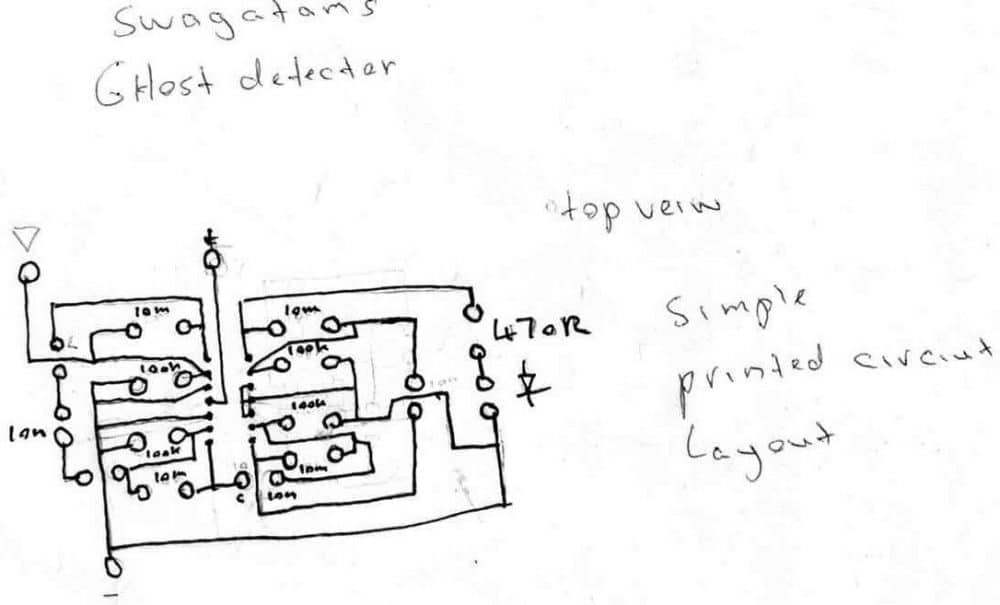 Swagatams
GHost detecter
top veiw
Simple
printed circiut
Layout
+
10m
10m
470R
100k
100k
100k
10n
100k
10m
10m
10n
c
-